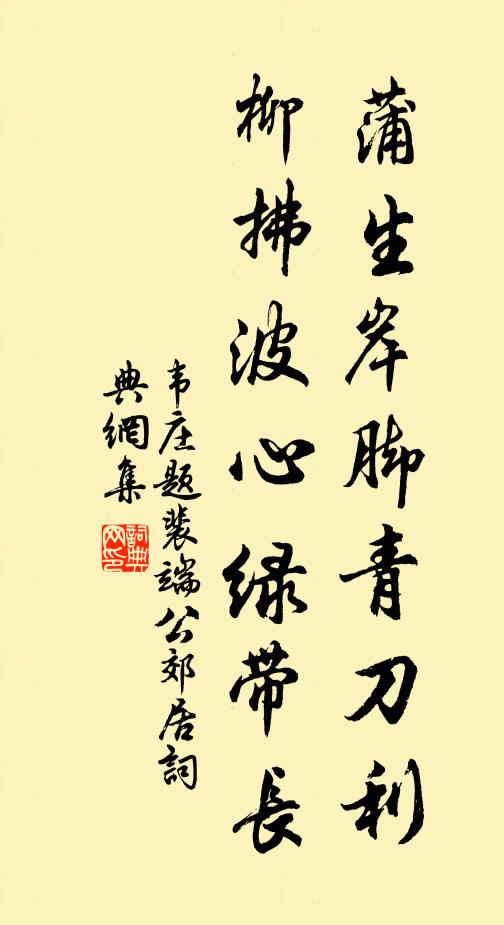 蒲生岸脚青刀利
柳拂波心绿带長
韦庄题裴端公郊居詞
典網集
詞典网印